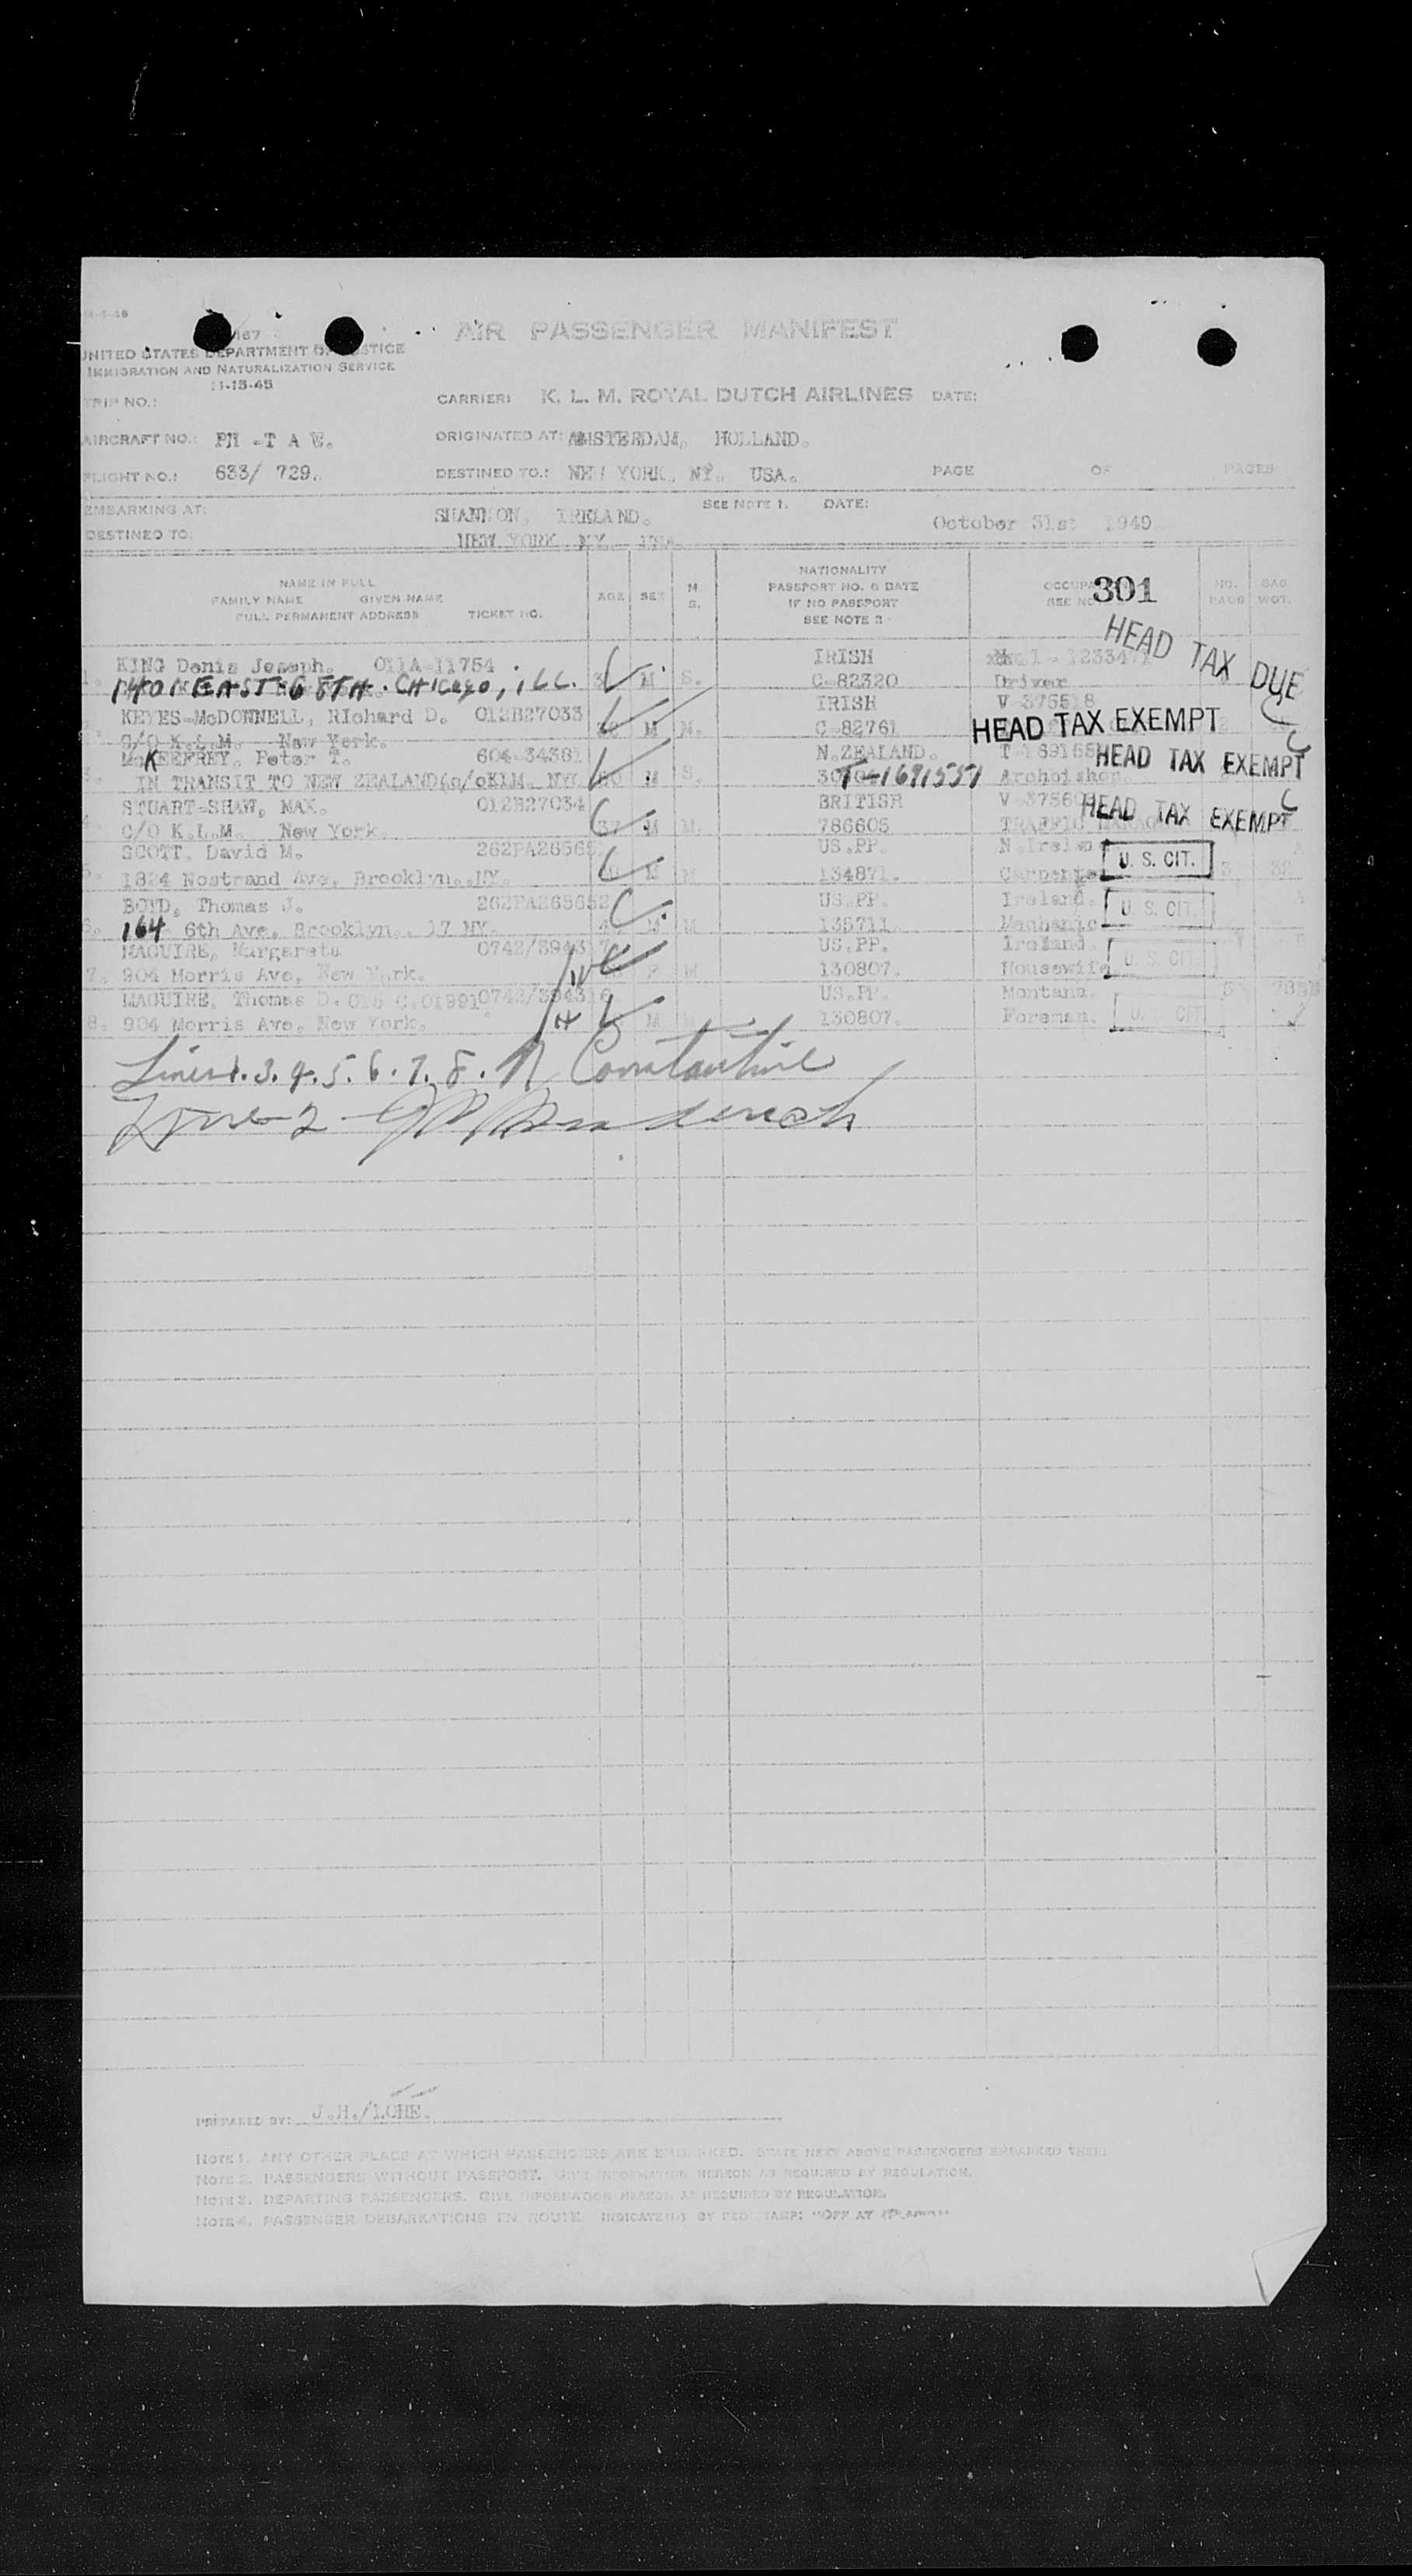 AIR PASSENGER MANIFEST
UNITED STATES DEPARTMENT OF JUSTICE
IMMIGRATION AND NATURALIZATION SERVICE
11-15-45
TRIP NO.: CARRIER: K. L. M. ROYAL DUTCH AIRLINES DATE:
AIRCRAFT NO.: PH -T A W. ORIGINATED AT: AMSTERDAM, HOLLAND.
FLIGHT NO.: 633/ 729. DESTINED TO.: NEW YORK, NY. USA. PAGE OF PAGES
EMBARKING AT: SHANNON, IRELAND. SEE NOTE 1. DATE: October 31st 1949
DESTINED TO: NEW YORK NY. USA.
NAME IN FULL
FAMILY NAME GIVEN NAME
FULL PERMANENT ADDRESS TICKET NO.
AGE SEX M. S.
NATIONALITY
PASSPORT NO. & DATE
IF NO PASSPORT
SEE NOTE 2
SEE NO 301
NO. BAGS BAG. WGT.
HEAD TAX DUE
1. KING Denis Joseph. 011A-11754 IRISH
EAST 68TH. CHICAGO, ILL. M S. C-82320 Driver
KEYES-McDONNELL, RIchard D. 012B27033 IRISH V-375518
C/O K.L.M. New York. M M. C-82761 HEAD TAX EXEMPT
3. McKEEFREY, Peter T. 604-34381 N.ZEALAND. HEAD TAX EXEMPT
IN TRANSIT TO NEW ZEALAND(c/oKLM. NYC M S. T-1691551 Archbishop.
STUART-SHAW, MAX. 012B27034 BRITISH HEAD TAX EXEMPT
C/O K.L.M. New York. 37 M M. 786605
5. SCOTT, David M. US.PP. U. S. CIT.
1824 Nostrand Ave, Brooklyn.,NY. M M 134871. Carpenter
6. BOYD, Thomas J. 262PA265652 US.PP. Ireland. U. S. CIT.
164 6th Ave. Brooklyn. 17 NY. M M 135711. Mechanic
MAGUIRE, Margareta 0742/394317 US.PP. Ireland. U. S. CIT.
7. 904 Morris Ave, New York. F M 130807. Housewife
MAGUIRE, Thomas D. 0742/394316 US.PP. Montana.
8. 904 Morris Ave, New York. M 130807. Foreman. U. S. CIT
Lines 1. 3. 4. 5. 6. 7. 8. N Constantine
Line 2
PREPARED BY: J.H./LOHE.
NOTE 1. ANY OTHER PLACE AT WHICH PASSENGERS ARE EMBARKED. STATE NEXT ABOVE PASSENGERS EMBARKED THERE
NOTE 2. PASSENGERS WITHOUT PASSPORT. GIVE INFORMATION HEREON AS REQUIRED BY REGULATION.
NOTE 3. DEPARTING PASSENGERS. GIVE INFORMATION HEREON AS REQUIRED BY REGULATION.
NOTE 4. PASSENGER DEBARKATIONS EN ROUTE INDICATE(D) BY RED STAMP: "OFF AT (PLACE)"